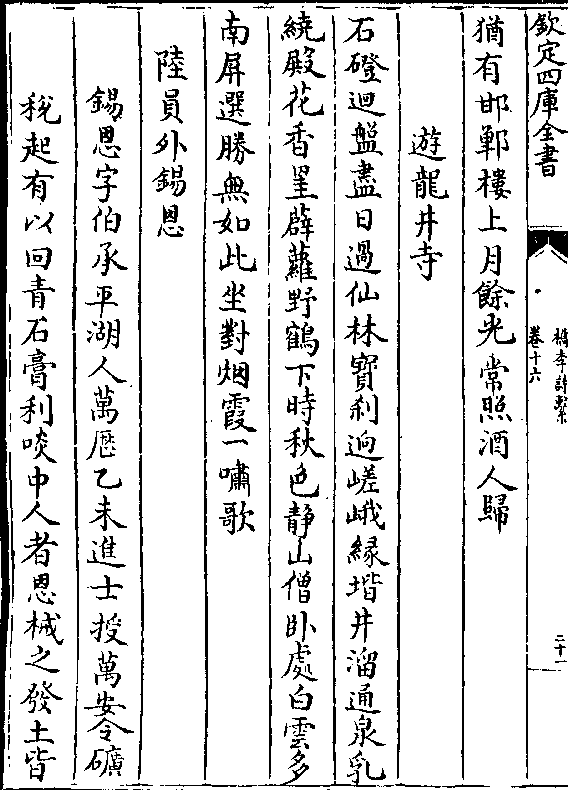 欽定四庫全書
檇李詩繫
卷十六
二十一
猶有邯鄲樓上月餘光常照酒人歸
遊龍井寺
石磴迴盤盡日過仙林寶刹逈嵯峨緣堦井溜通泉乳
繞殿花香罣薜蘿野鶴下時秋色静山僧卧處白雲多
南屏選勝無如此坐對烟霞一嘯歌
陸員外錫恩
錫恩字伯承平湖人萬厯乙未進士授萬安令礦
稅起有以回青石膏利啖中人者恩械之發土皆